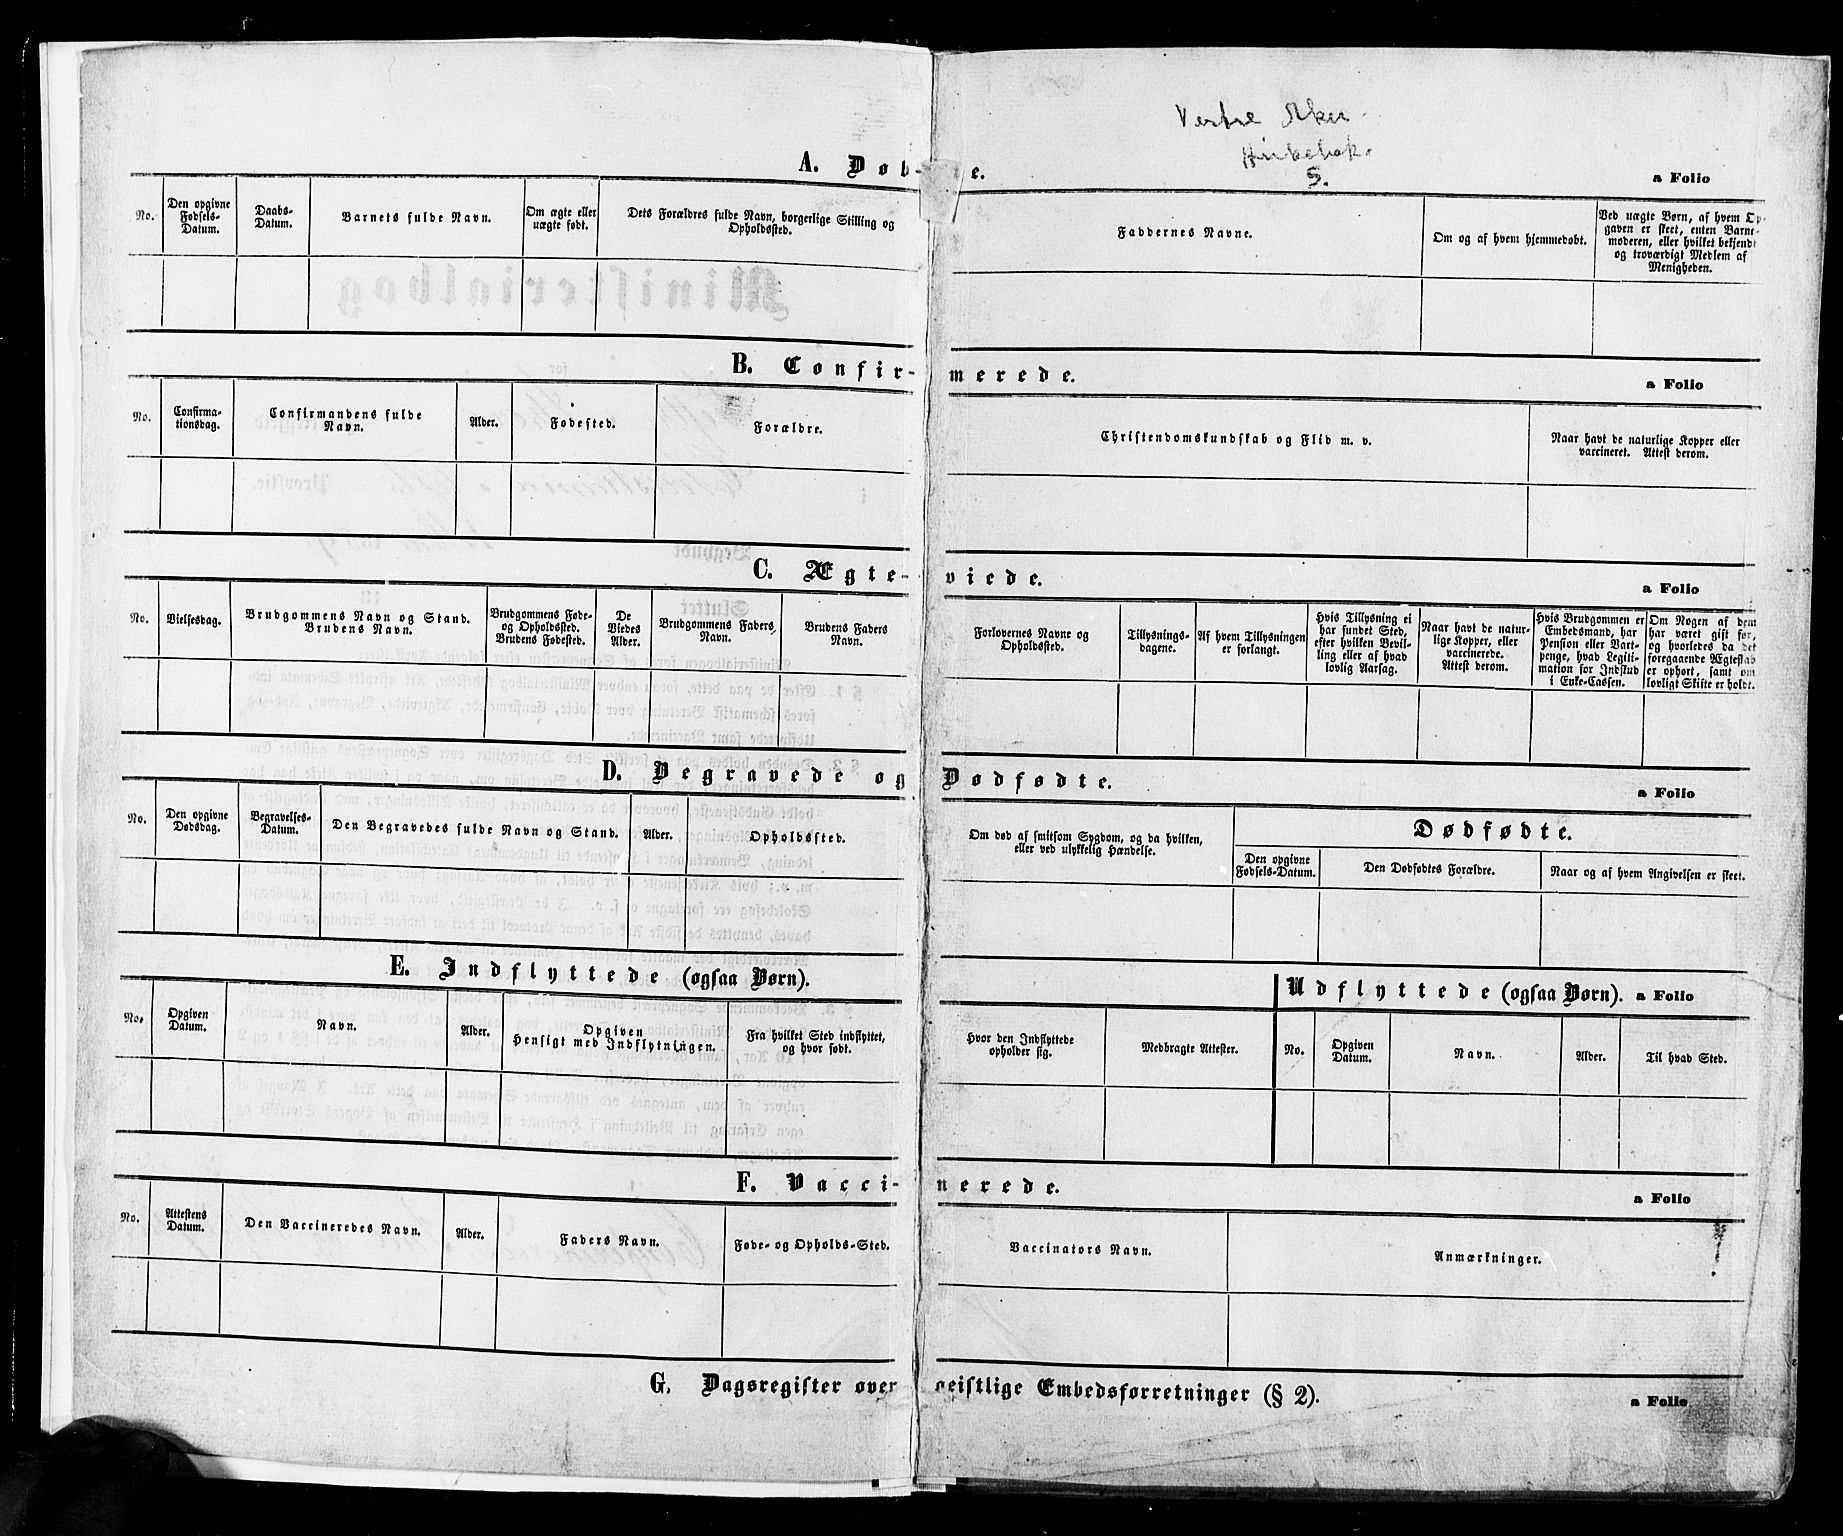 Vestre Aker
Kirkebok.
5.
A. Døbte.
a Folio
No.
Den opgivne
Fødsels-
Datum.
Daabs-
Datum.
Barnets fulde Navn.
Om ægte eller
uægte født.
Dets Forældres fulde Navn, borgerlige Stilling og
Opholdssted.
Faddernes Navne.
Om og af hvem hjemmedøbt.
Ved uægte Børn, af hvem Op-
gaven er skeet, enten Barne-
moderen, eller hvilket bekjendt
og troværdigt Medlem af
Menigheden.
Ministerialbog
for
B. Confirmerede.
a Folio
No.
Confirma-
tionsdag.
Confirmandens fulde
Navn.
Alder.
Fødested.
Forældre.
Christendomskundskab og Flid m. v.
Naar havt de naturlige Kopper eller
vaccineret. Attest derom.
i
Provstie.
Begyndt
C. Ægteviede.
a Folio
Sluttet
18
No.
Vielsesdag.
Brudgommens Navn og Stand.
Brudens Navn.
Brudgommens Føde-
og Opholdssted.
Brudens Fødested.
De
Viedes
Alder.
Brudgommens Faders
Navn.
Brudens Faders
Navn.
Forlovernes Navne og
Opholdssted.
Tillysnings-
dagene.
Af hvem Tillysningen
er forlangt.
Hvis Tillysning ei
har fundet Sted,
efter hvilken Bevil-
ling eller af hvad
lovlig Aarsag.
Naar havt de natur-
lige Kopper, eller
vaccinerede.
Attest derom.
Hvis Brudgommen er
Embedsmand, har
Pension eller Vart-
penge, hvad Legiti-
mation for Indskud
i Enke-Cassen.
Om Nogen af dem
har været gift før,
og hvorledes da det
foregaaende Ægteskab
er ophørt, samt om
lovligt Skifte er holdt.
D. Begravede og Dødfødte.
a Folio
No.
Den opgivne
Dødsdag.
Begravelses-
Datum.
Den Begravedes fulde Navn og Stand.
Alder.
Opholdssted.
Om død af smitsom Sygdom, og da hvilken,
eller ved ulykkelig Hændelse.
Dødfødte.
Den opgivne
Fødsels-Datum.
Den Dødfødtes Forældre.
Naar og af hvem Angivelsen er skeet.
E. Indflyttede (ogsaa Børn).
Udflyttede (ogsaa Børn).
a Folio
No.
Opgiven
Datum.
Navn.
Alder.
Opgiven
Hensigt med Indflytningen.
Fra hvilket Sted indflyttet,
og hvor født.
Hvor den Indflyttede
opholder sig.
Medbragte Attester.
No.
Opgiven
Datum.
Navn.
Alder.
Til hvad Sted.
F. Vaccinerede.
a Folio
No.
Attestens
Datum.
Den Vaccineredes Navn.
Alder.
Faders Navn.
Føde- og Opholds-Sted.
Vaccinators Navn.
Anmærkninger.
G. Dagsregister over geistlige Embedsforretninger (§ 2).
a Folio